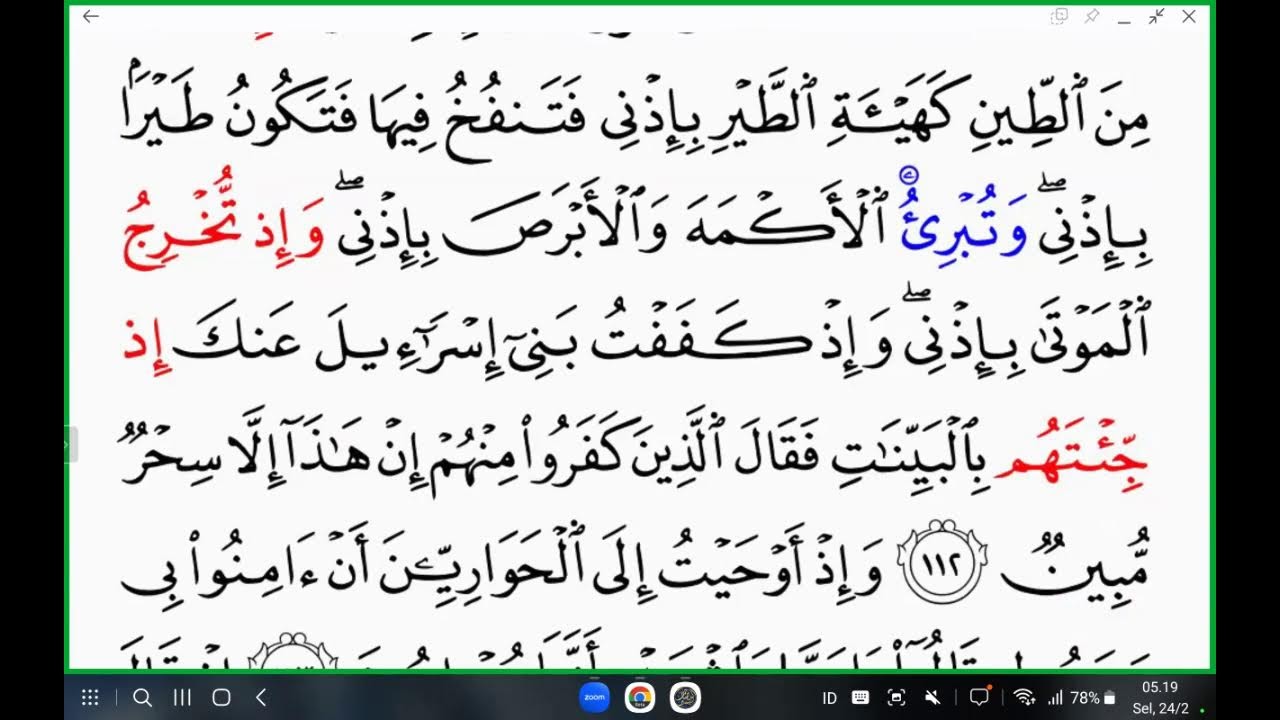 مِنَ ٱلطِّينِ كَهَيْـَٔةِ ٱلطَّيْرِ بِإِذْنِى فَتَنفُخُ فِيهَا فَتَكُونُ طَيْرَۢا
بِإِذْنِىۖ وَتُبْرِئُ ٱلْأَكْمَهَ وَٱلْأَبْرَصَ بِإِذْنِىۖ وَإِذ تُّخْرِجُ
ٱلْمَوْتَىٰ بِإِذْنِىۖ وَإِذْ كَفَفْتُ بَنِىٓ إِسْرَٰٓءِيلَ عَنكَ إِذ
جِّئْتَهُم بِٱلْبَيِّنَٰتِ فَقَالَ ٱلَّذِينَ كَفَرُوا۟ مِنْهُمْ إِنْ هَٰذَآ إِلَّا سِحْرٌ
مُّبِينٌ ١١٢ وَإِذْ أَوْحَيْتُ إِلَى ٱلْحَوَارِيِّـۧنَ أَنْ ءَامِنُوا۟ بِى
zoom
ID
78%
05.19
Sel, 24/2